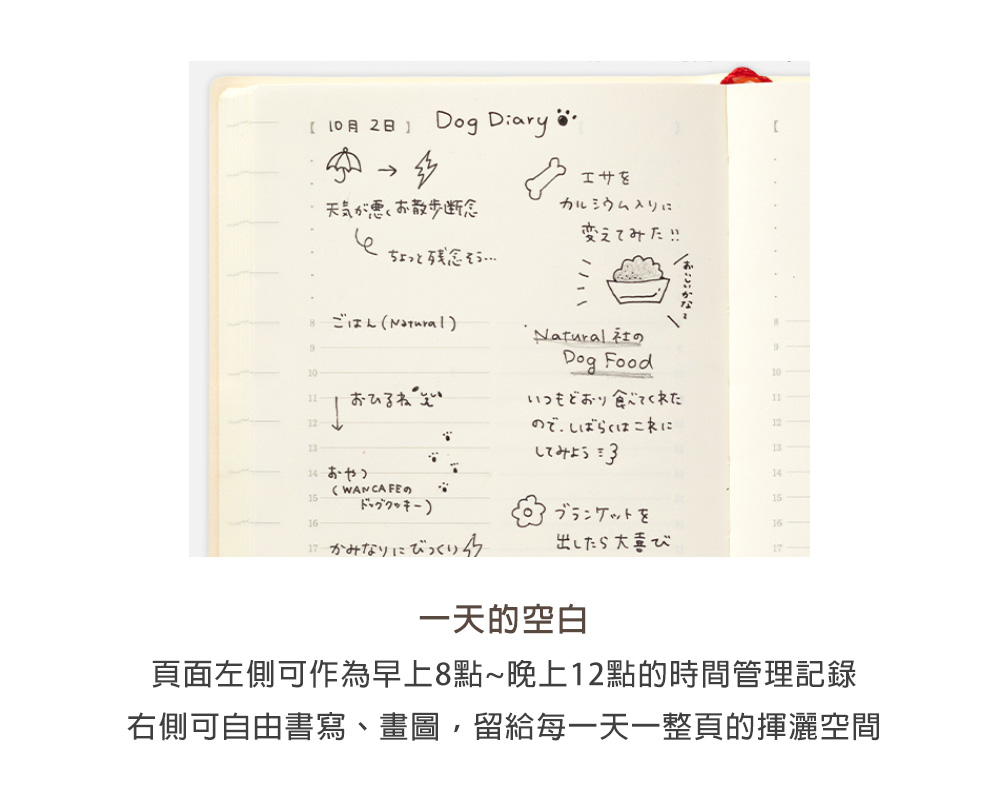 [ 10月 2日 ] Dog Diary
天気が悪くお散歩断念
ちょっと残念そう…
8 ごはん(Natural)
9
10
11 おひるね
12
13
14 おやつ
15 (WANCAFEの
ドッグクッキー)
16
17 かみなりにびっくり
エサを
カルシウム入りに
変えてみた!!
おいしいかな?
Natural 社の
Dog Food
いつもどおり食べてくれた
ので、しばらくはこれに
してみよう
ブランケットを
出したら大喜び
[
8
9
10
11
12
13
14
15
16
17
一天的空白
頁面左側可作為早上8點~晚上12點的時間管理記錄
右側可自由書寫、畫圖，留給每一天一整頁的揮灑空間